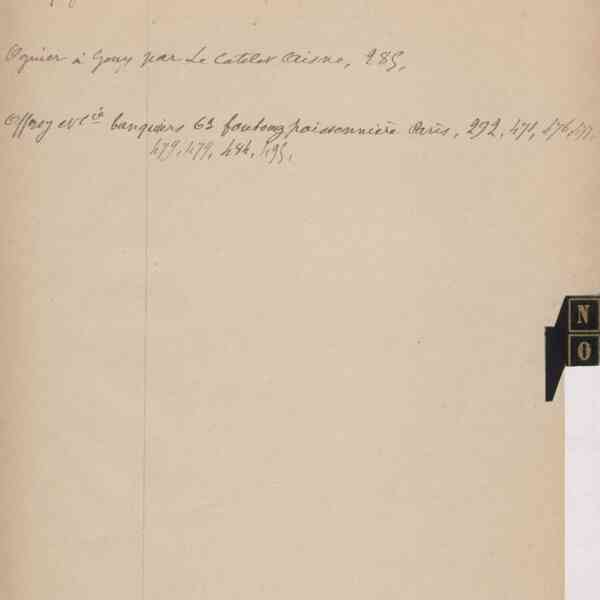 Ognier à Gouy par Le Catelet Aisne, 285,
Offroy et Cie banquiers 63 faubourg poissonnière Paris, 292, 471, 476, 477,
479, 479, 484, 495,
N
O